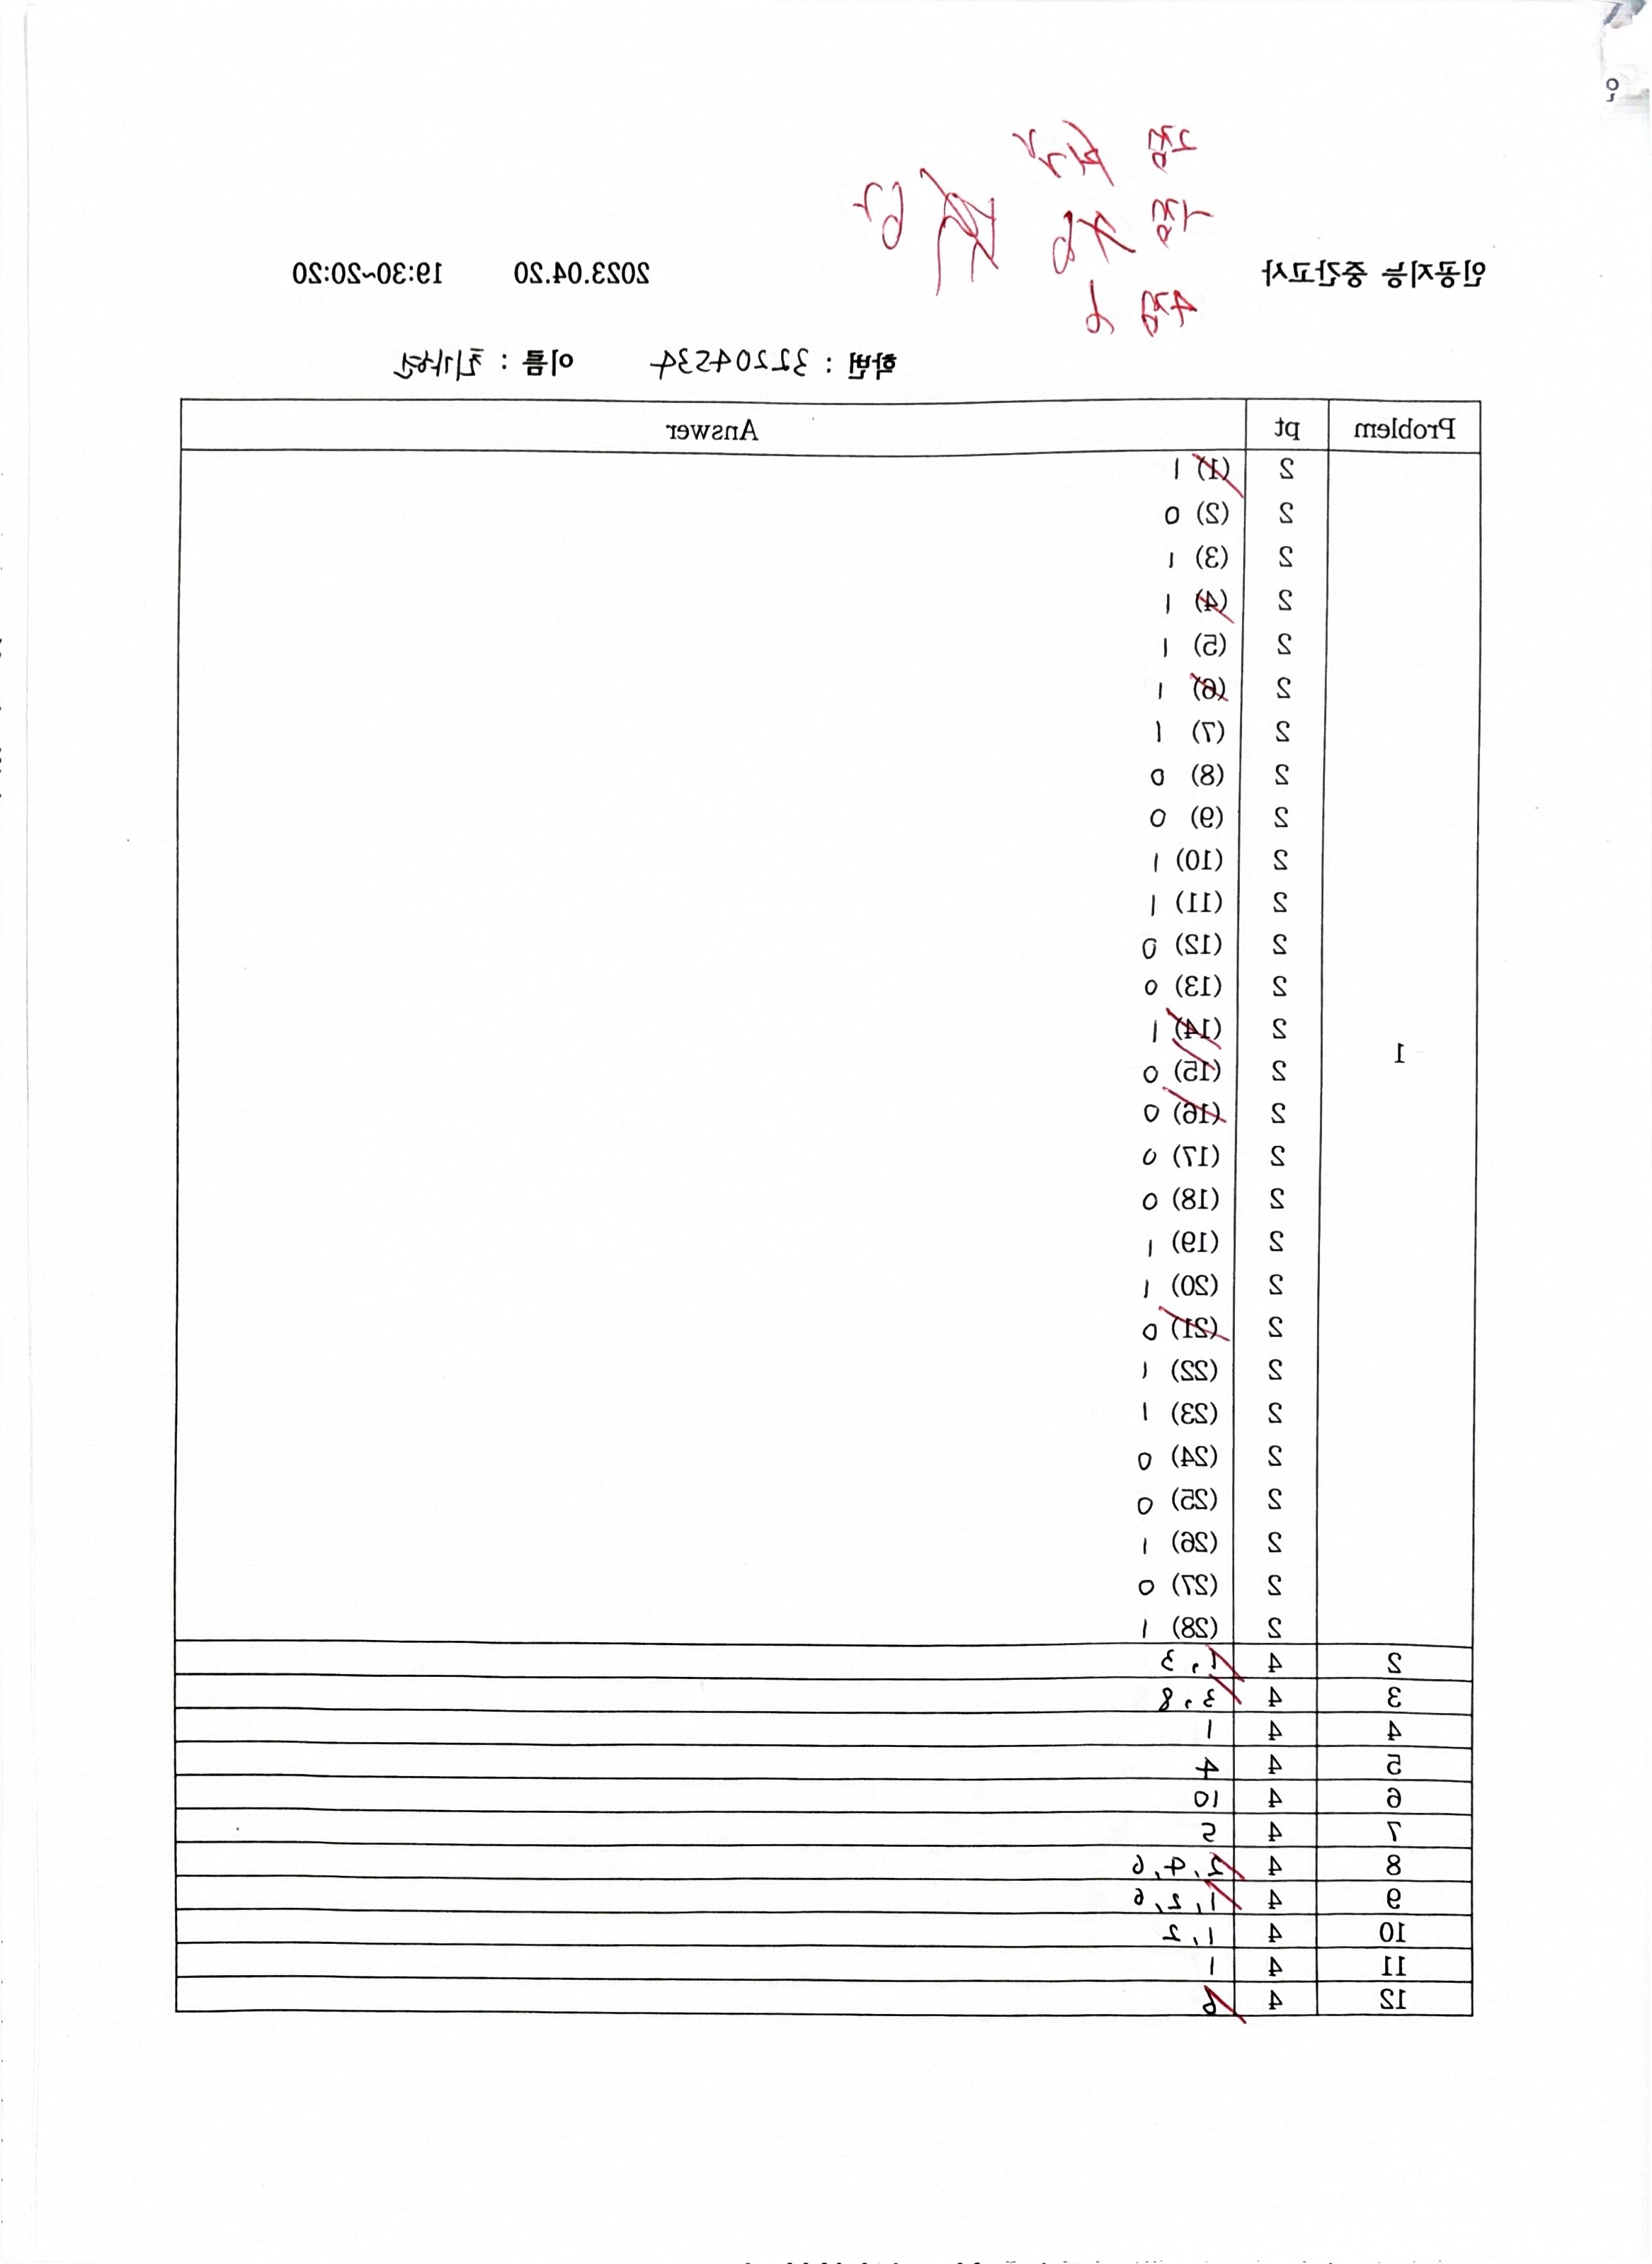 인공지능 중간고사 2023.04.20 19:30~20:20
학번 : 32204534 이름 :
Problem pt Answer
1
2 (1) 1
2 (2) 0
2 (3) 1
2 (4) 1
2 (5) 1
2 (6) 1
2 (7) 1
2 (8) 0
2 (9) 0
2 (10) 1
2 (11) 1
2 (12) 0
2 (13) 0
2 (14) 1
2 (15) 0
2 (16) 0
2 (17) 0
2 (18) 0
2 (19) 1
2 (20) 1
2 (21) 0
2 (22) 1
2 (23) 1
2 (24) 0
2 (25) 0
2 (26) 1
2 (27) 0
2 (28) 1
2 4 1, 3
3 4 3, 8
4 4 1
5 4 4
6 4 10
7 4 5
8 4 2, 4, 6
9 4 1, 2, 6
10 4 1, 2
11 4 1
12 4 6